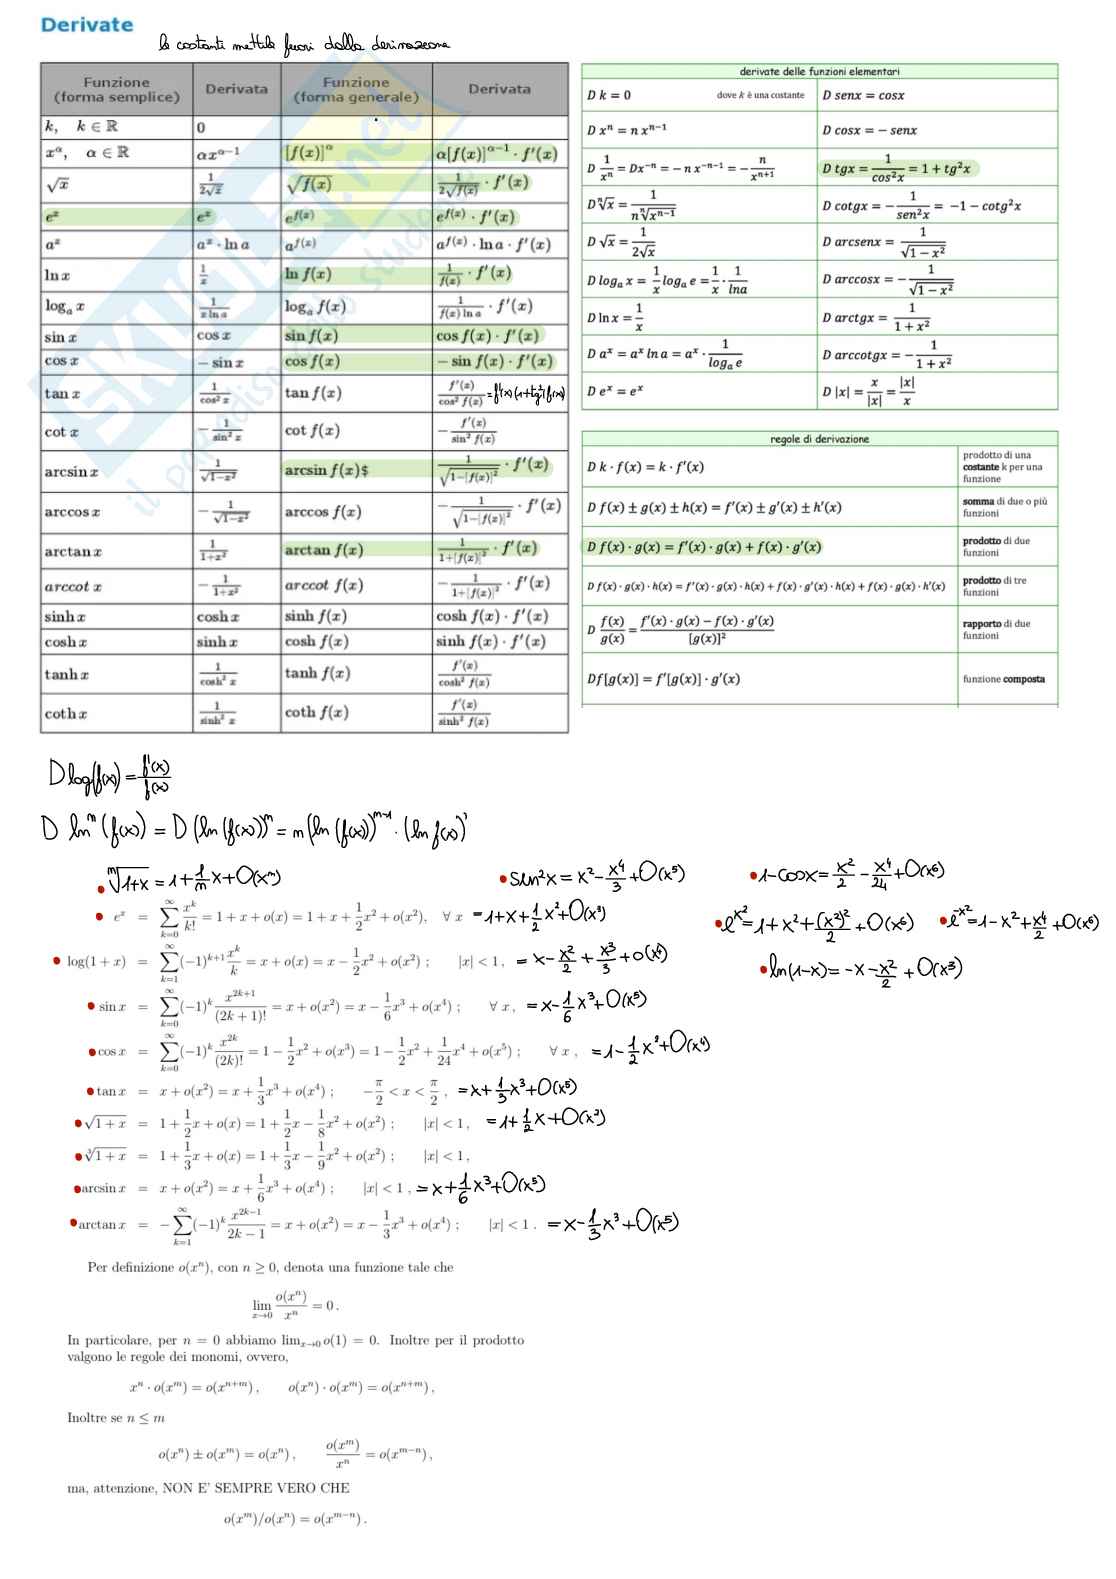 Derivate
le costanti mettile fuori dalla derivazione
Funzione (forma semplice) | Derivata | Funzione (forma generale) | Derivata
k, k ∈ ℝ | 0
x^α, α ∈ ℝ | αx^{α−1} | [f(x)]^α | α[f(x)]^{α−1} · f'(x)
√x | 1/(2√x) | √f(x) | 1/(2√f(x)) · f'(x)
e^x | e^x | e^{f(x)} | e^{f(x)} · f'(x)
a^x | a^x · ln a | a^{f(x)} | a^{f(x)} · ln a · f'(x)
ln x | 1/x | ln f(x) | 1/f(x) · f'(x)
log_a x | 1/(x ln a) | log_a f(x) | 1/(f(x) ln a) · f'(x)
sin x | cos x | sin f(x) | cos f(x) · f'(x)
cos x | − sin x | cos f(x) | − sin f(x) · f'(x)
tan x | 1/cos² x | tan f(x) | f'(x)/cos² f(x) = f'(x)(1+tg²(f(x))
cot x | − 1/sin² x | cot f(x) | − f'(x)/sin² f(x)
arcsin x | 1/√(1−x²) | arcsin f(x)$ | 1/√(1−[f(x)]²) · f'(x)
arccos x | − 1/√(1−x²) | arccos f(x) | − 1/√(1−[f(x)]²) · f'(x)
arctan x | 1/(1+x²) | arctan f(x) | 1/(1+[f(x)]²) · f'(x)
arccot x | − 1/(1+x²) | arccot f(x) | − 1/(1+[f(x)]²) · f'(x)
sinh x | cosh x | sinh f(x) | cosh f(x) · f'(x)
cosh x | sinh x | cosh f(x) | sinh f(x) · f'(x)
tanh x | 1/cosh² x | tanh f(x) | f'(x)/cosh² f(x)
coth x | 1/sinh² x | coth f(x) | f'(x)/sinh² f(x)
SKUOLA.net
il paradiso dello studente
derivate delle funzioni elementari
D k = 0 dove k è una costante | D senx = cosx
D x^n = n x^{n−1} | D cosx = − senx
D 1/x^n = Dx^{−n} = − n x^{−n−1} = − n/x^{n+1} | D tgx = 1/cos²x = 1 + tg²x
D ⁿ√x = 1/(n ⁿ√x^{n−1}) | D cotgx = − 1/sen²x = −1 − cotg²x
D √x = 1/(2√x) | D arcsenx = 1/√(1 − x²)
D log_a x = 1/x log_a e = 1/x · 1/lna | D arccosx = − 1/√(1 − x²)
D ln x = 1/x | D arctgx = 1/(1 + x²)
D a^x = a^x ln a = a^x · 1/log_a e | D arccotgx = − 1/(1 + x²)
D e^x = e^x | D |x| = x/|x| = |x|/x
regole di derivazione
D k · f(x) = k · f'(x) | prodotto di una costante k per una funzione
D f(x) ± g(x) ± h(x) = f'(x) ± g'(x) ± h'(x) | somma di due o più funzioni
D f(x) · g(x) = f'(x) · g(x) + f(x) · g'(x) | prodotto di due funzioni
D f(x) · g(x) · h(x) = f'(x) · g(x) · h(x) + f(x) · g'(x) · h(x) + f(x) · g(x) · h'(x) | prodotto di tre funzioni
D f(x)/g(x) = (f'(x) · g(x) − f(x) · g'(x))/[g(x)]² | rapporto di due funzioni
Df[g(x)] = f'[g(x)] · g'(x) | funzione composta
D log(f(x)) = f'(x)/f(x)
D lnⁿ(f(x)) = D (ln(f(x))ⁿ = n(ln(f(x))^{n−1} · (ln f(x))'
ᵐ√1+x = 1 + 1/m x + O(xᵐ)
sin²x = x² − x⁴/3 + O(x⁵)
1−cosx = x²/2 − x⁴/24 + O(x⁶)
e^x = ∑_{k=0}^{∞} x^k/k! = 1 + x + o(x) = 1 + x + 1/2 x² + o(x²), ∀ x = 1+x+1/2 x²+O(x³)
e^{x²} = 1+x²+(x²)²/2 + O(x⁶)
e^{−x²} = 1−x²+x⁴/2 + O(x⁶)
log(1 + x) = ∑_{k=1}^{∞} (−1)^{k+1} x^k/k = x + o(x) = x − 1/2 x² + o(x²) ; |x| < 1, = x − x²/2 + x³/3 + o(x⁴)
ln(1−x) = −x − x²/2 + O(x³)
sin x = ∑_{k=0}^{∞} (−1)^k x^{2k+1}/(2k + 1)! = x + o(x²) = x − 1/6 x³ + o(x⁴) ; ∀ x, = x − 1/6 x³ + O(x⁵)
cos x = ∑_{k=0}^{∞} (−1)^k x^{2k}/(2k)! = 1 − 1/2 x² + o(x³) = 1 − 1/2 x² + 1/24 x⁴ + o(x⁵) ; ∀ x , = 1 − 1/2 x² + O(x⁴)
tan x = x + o(x²) = x + 1/3 x³ + o(x⁴) ; −π/2 < x < π/2 , = x + 1/3 x³ + O(x⁵)
√1 + x = 1 + 1/2 x + o(x) = 1 + 1/2 x − 1/8 x² + o(x²) ; |x| < 1, = 1 + 1/2 x + O(x²)
³√1 + x = 1 + 1/3 x + o(x) = 1 + 1/3 x − 1/9 x² + o(x²) ; |x| < 1,
arcsin x = x + o(x²) = x + 1/6 x³ + o(x⁴) ; |x| < 1 , = x + 1/6 x³ + O(x⁵)
arctan x = − ∑_{k=1}^{∞} (−1)^k x^{2k−1}/(2k − 1) = x + o(x²) = x − 1/3 x³ + o(x⁴) ; |x| < 1 . = x − 1/3 x³ + O(x⁵)
Per definizione o(xⁿ), con n ≥ 0, denota una funzione tale che
lim_{x→0} o(xⁿ)/xⁿ = 0 .
In particolare, per n = 0 abbiamo lim_{x→0} o(1) = 0. Inoltre per il prodotto
valgono le regole dei monomi, ovvero,
xⁿ · o(x^m) = o(x^{n+m}) , o(xⁿ) · o(x^m) = o(x^{n+m}) ,
Inoltre se n ≤ m
o(xⁿ) ± o(x^m) = o(xⁿ) , o(x^m)/xⁿ = o(x^{m−n}) ,
ma, attenzione, NON E' SEMPRE VERO CHE
o(x^m)/o(xⁿ) = o(x^{m−n}) .